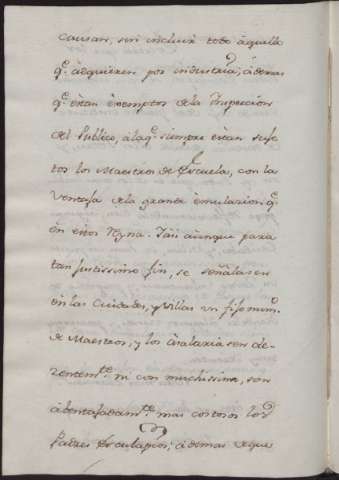 causan, sin incluir todo àquello
q.^e àdquieren por industria; àdemas
q.^e estan èxemptos de la Inspeccion
del Publico, à la q.^e siempre estan suje
tos los Maestros de Escuela, con la
ventaja de la grande èmulacion q.^e
èn estos Reyna. I àun àunque para
tan justissimo fin, se señalasen
èn las Ciudades, y Villas un fijo num.^o
de Maestros, y los àsalariasen de-
zentem.^te ni con muchissimo, son
àbentajadam.^te mas costosos los
Padres Esculapios; àdemas de que